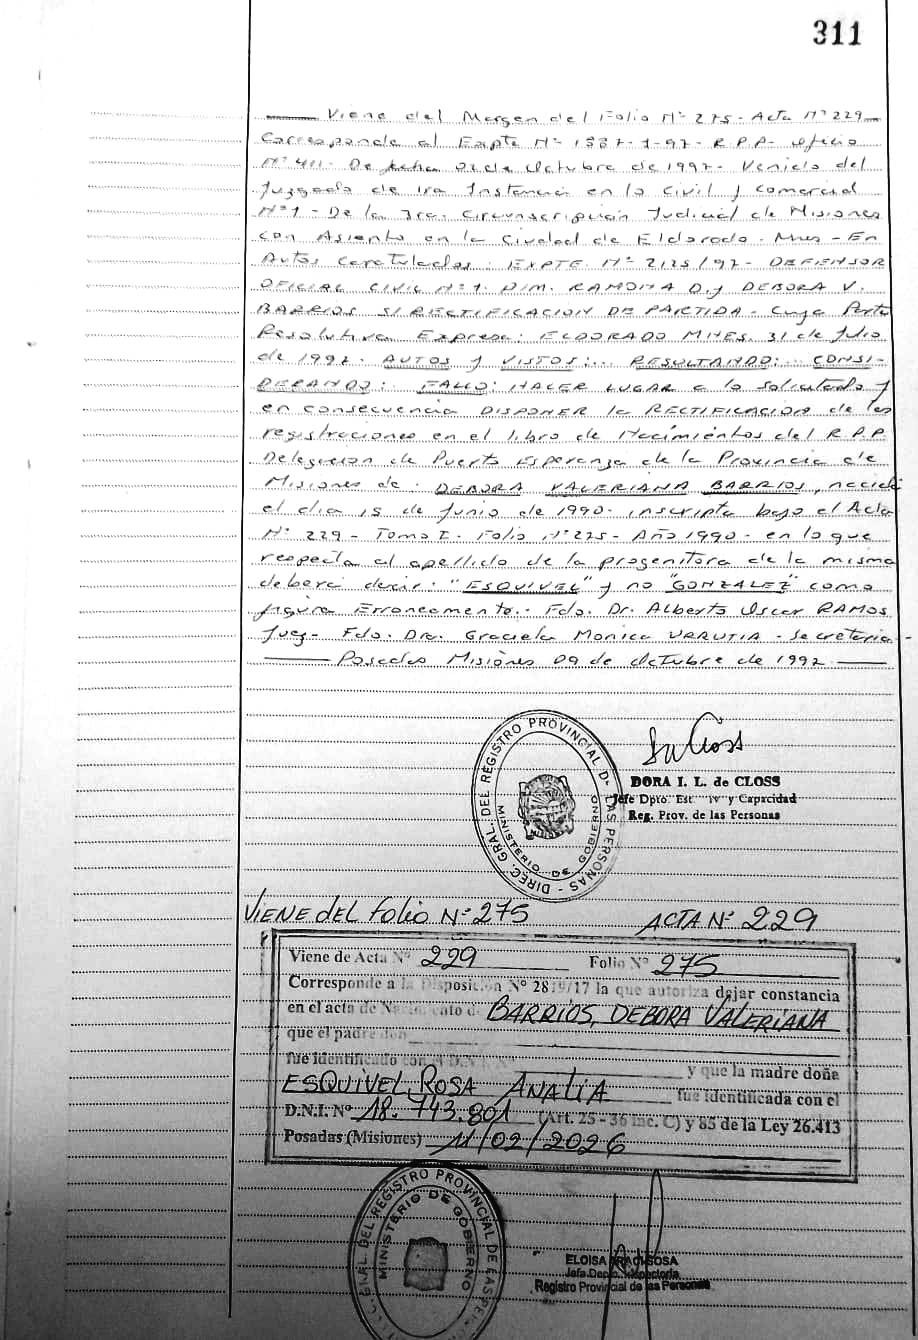 311
Viene del Margen del Folio Nº 275 - Acta Nº 229
Corresponde al Expte Nº 1337-1-92- R.P.P. oficio
Nº 411- De fecha 02 de Octubre de 1992- Venido del
Juzgado de 1ra Instancia en lo Civil y Comercial
Nº 1 - De la 3ra. Circunscripción Judicial de Misiones
con Asiento en la Ciudad de Eldorado. Mnes - En
Autos Caratulados: EXPTE. Nº 2125/92- DEFENSOR
OFICIAL CIVIL Nº 1. P/M. RAMONA D. y DEBORA V.
BARRIOS S/ RECTIFICACION DE PARTIDA - Cuya Parte
Resolutiva Expresa: ELDORADO MNES. 31 de Julio
de 1992. AUTOS y VISTOS:.. RESULTANDO:.. CONSI-
DERANDO: FALLO: HACER LUGAR a lo solicitado y
en consecuencia DISPONER la RECTIFICACION de las
registraciones en el libro de Nacimientos del R.P.P.
Delegacion de Puerto Esperanza de la Provincia de
Misiones de: DEBORA VALERIANA BARRIOS, nacida
el dia 15 de Junio de 1990- inscripta bajo el Acta
Nº 229 - Tomo I. Folio Nº 275 - Año 1990- en lo que
respecta al apellido de la progenitora de la misma
debera decir: "ESQUIVEL" y no "GONZALEZ" como
figura Erroneamente.- Fdo. Dr. Alberto Oscar RAMOS
Juez- Fdo. Dra. Graciela Monica URRUTIA - Secretaria -
Posadas Misiones 09 de Octubre de 1992
DIREC. GRAL. DEL REGISTRO PROVINCIAL DE LAS PERSONAS -
MINISTERIO DE GOBIERNO
DORA I. L. de CLOSS
Jefe Dpto. Est. iv y Capacidad
Reg. Prov. de las Personas
VIENE del Folio Nº 275 ACTA Nº 229
Viene de Acta Nº 229 Folio Nº 275
Corresponde a la Disposición Nº 2819/17 la que autoriza dejar constancia
en el acta de Nacimiento de BARRIOS, DEBORA VALERIANA
que el padre don
fue identificado con el D.N.I. Nº y que la madre doña
ESQUIVEL, ROSA ANALIA fue identificada con el
D.N.I. Nº 18.743.801 (Art. 25 - 36 inc. C) y 85 de la Ley 26.413
Posadas (Misiones) 11/02/2026
GRAL. DEL REGISTRO PROVINCIAL DE LAS PERSONAS
MINISTERIO DE GOBIERNO
ELOISA SOSA
Jefa Depto. Inspectoría
Registro Provincial de las Personas